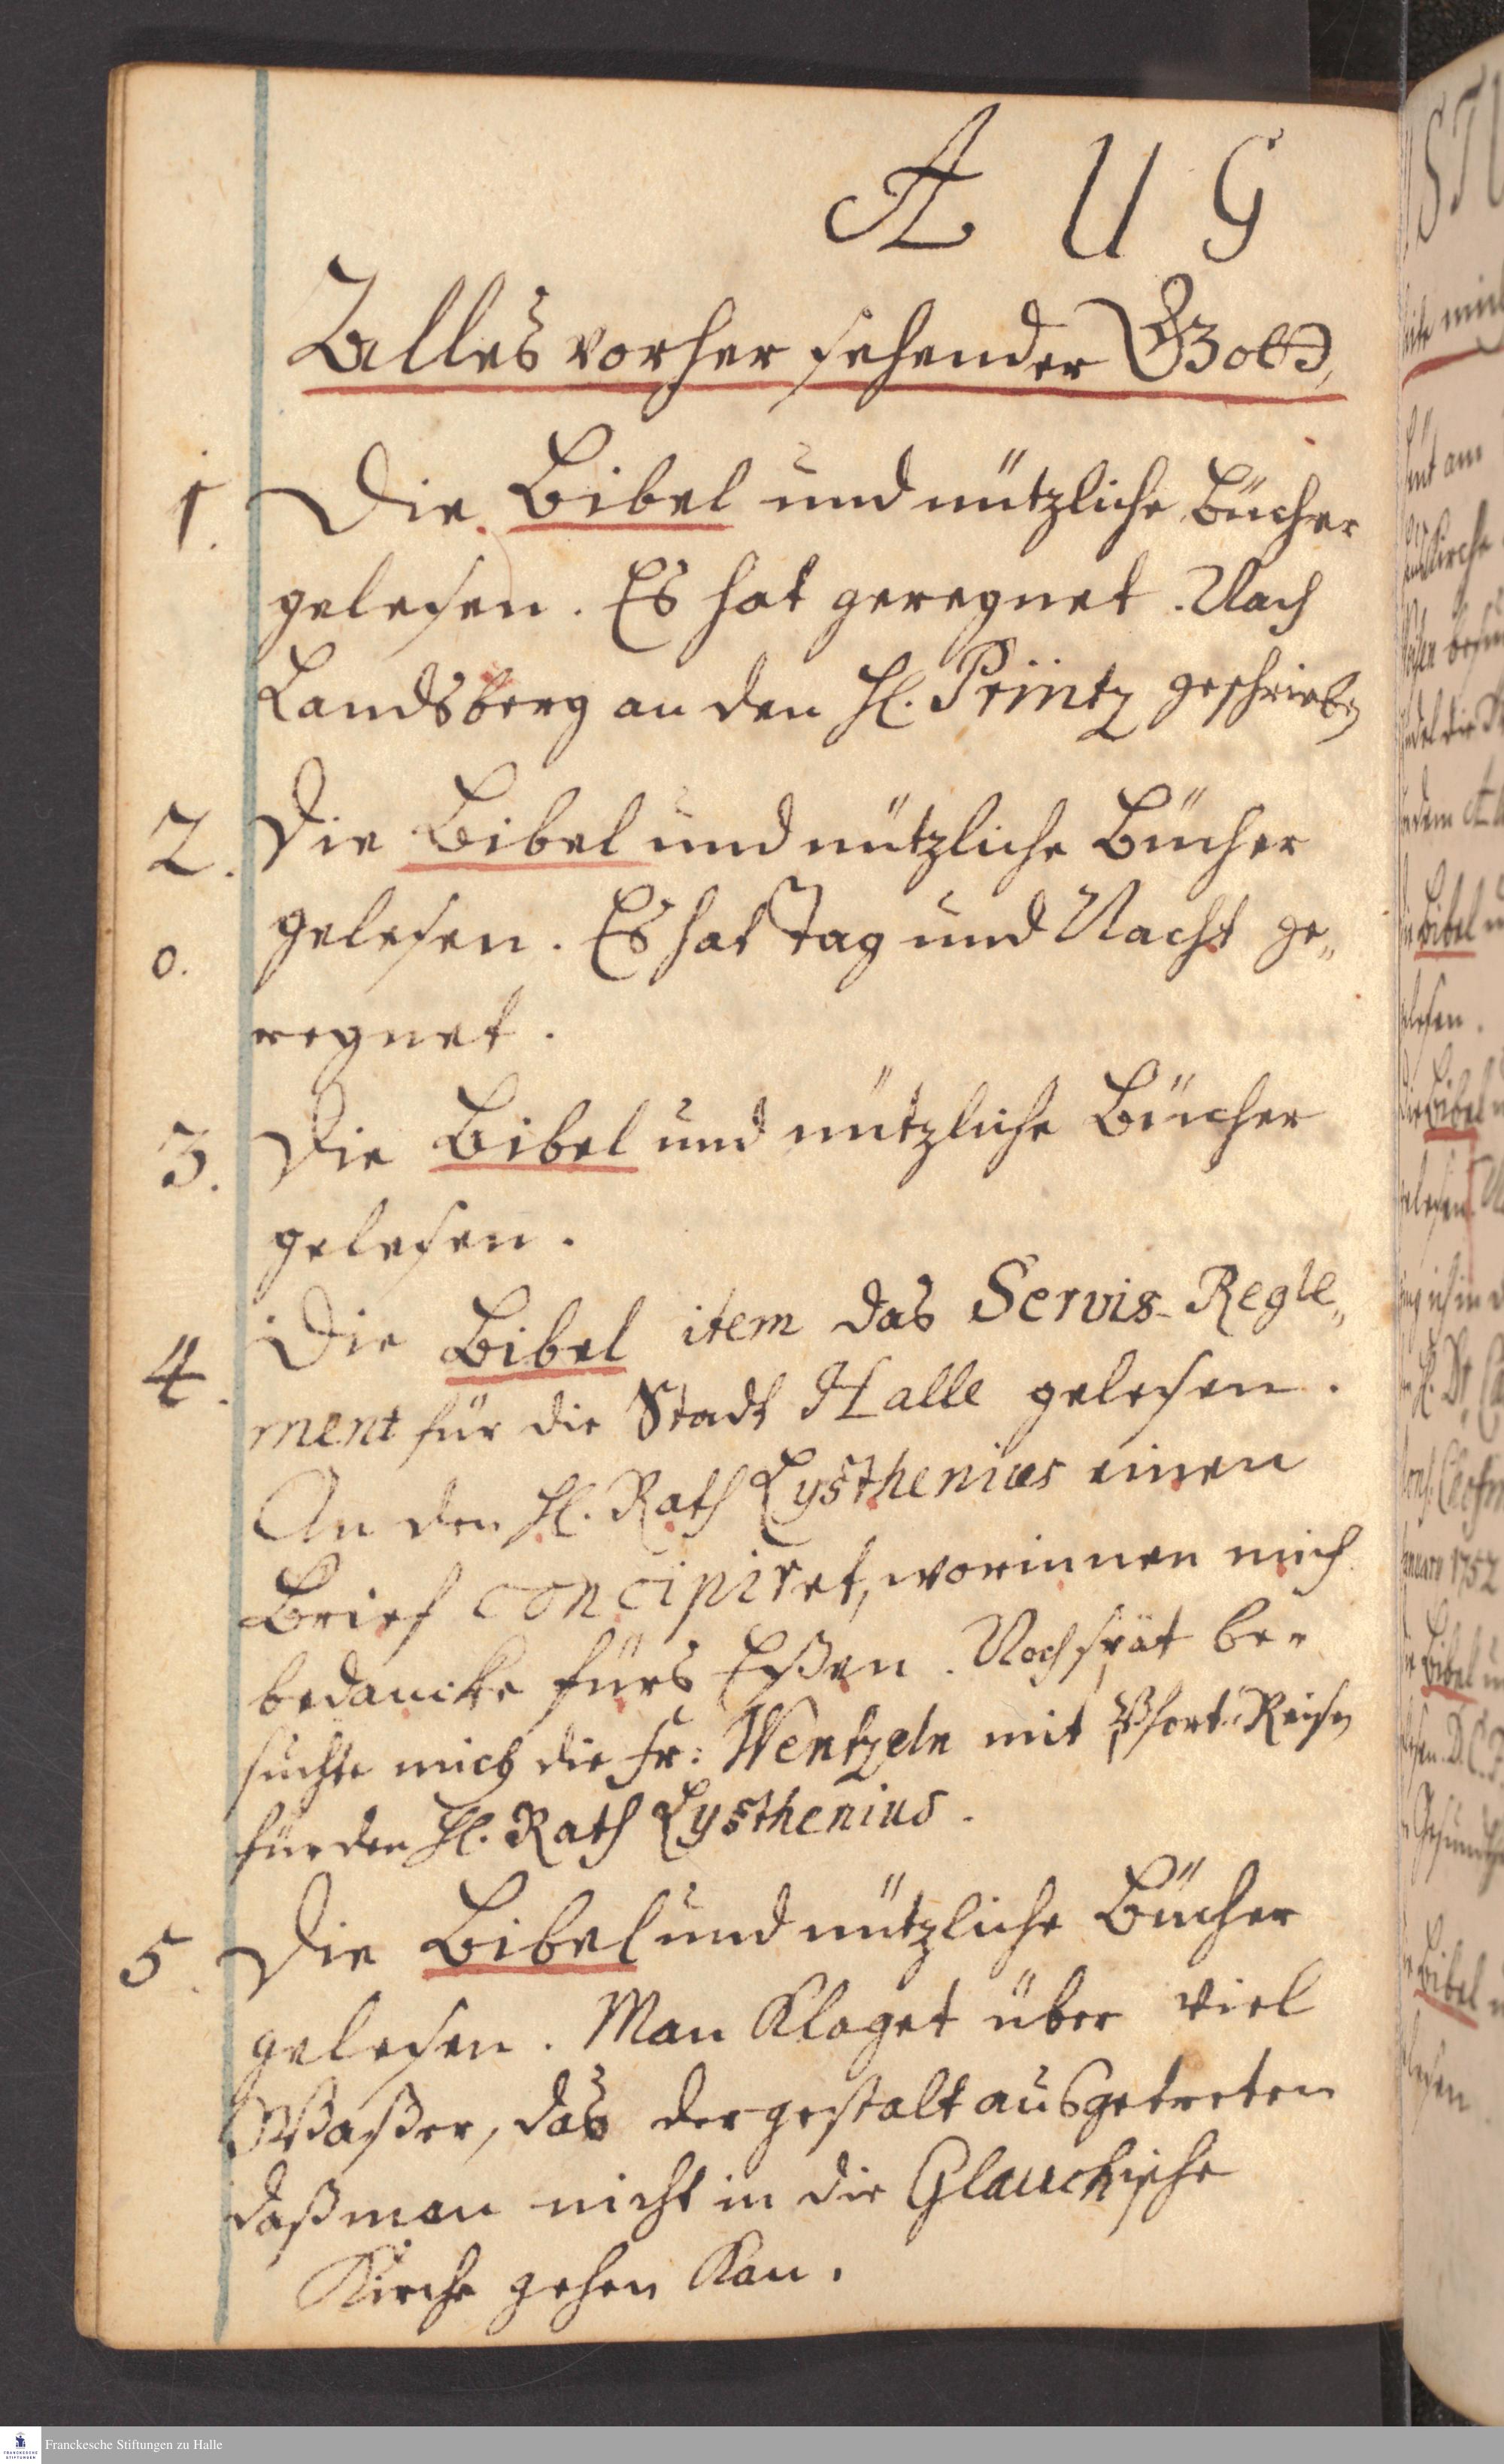 A U G
Alles vorher sehender Gott,
1. Die Bibel und nützliche Bücher
gelesen. Es hat geregnet. Nach
Landsberg an den H. Printz geschrieben
2. Die Bibel und nützliche Bücher
o. gelesen. Es hat Tag und Nacht ge„
regnet.
3. Die Bibel und nützliche Bücher
gelesen.
4. Die Bibel item das Servis-Regle„
ment für die Stadt Halle gelesen.
An den H. Rath Lysthenius einen
Brief concipiret, worinnen mich
bedancke fürs Eßen. Noch spät be„
suchte mich die Fr: Wentzeln mit
für den H. Rath Lysthenius.
5. Die Bibel und nützliche Bücher
gelesen. Man klaget über viel
Waßer, das dergestalt ausgetreten
daß man nicht in die Glauchische
Kirche gehen kan.
FRANCKESCHE
STIFTUNGEN
Franckesche Stiftungen zu Halle